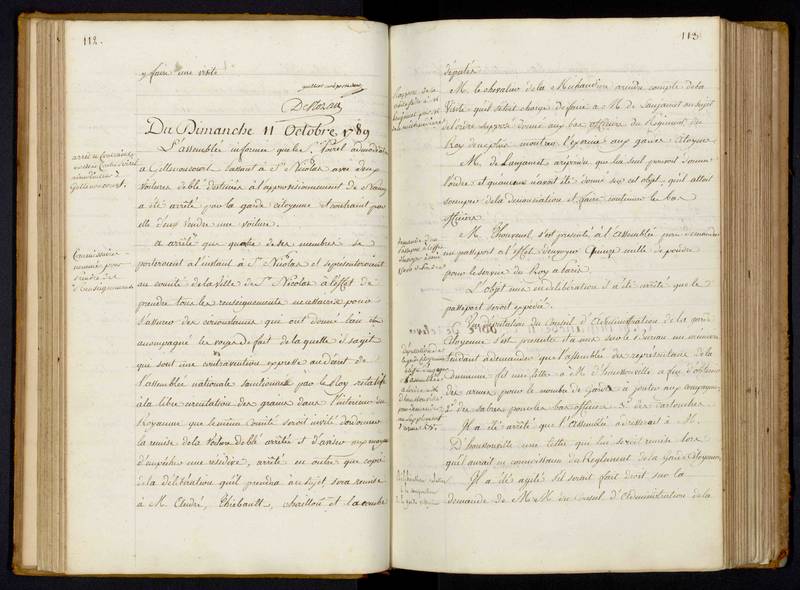 112.
y faire une visite
Du Dimanche 11 Octobre 1789
L'assemblée informée que le Sr. Noirel
à Gellenoncourt, passant à St. Nicolas avec deux
voitures de blé destinées à l'approvisionnement de Nancy
a été arrêté par la garde citoyenne et contraint par
elle d'y vendre une voiture.
a arrêté que quatre de ses membres se
porteroient à l'instant à St. Nicolas et se présenteroient
au comité de la ville de St. Nicolas à l'effet de
prendre tous les renseignements necessaires pour
s'assurer des circonstances qui ont donné lieu et
accompagné les voyes de fait de laquelle il s'agit
qui sont une contravention expresse au décret de
l'assemblée nationale sanctionné par le Roy relatif
à la libre circulation des grains dans l'intérieur du
Royaume que le même Comité seroit invité d'ordonner
la remise de la voiture de blé arrêtée et d'aviser aux moyens
d'empêcher une récidive, arrêté en outre que copie
de la délibération qu'il prendra au sujet, sera remise
à M. André, Thiebault, Chaillou et la combe
Commissaires
nommés pour
prendre des
renseignements
113.
députés.
M. le chevalier de la Michaudière a rendu compte de la
visite qu'il s'étoit chargé de faire à M. de Lanjamet au sujet
de l'ordre supposé donné aux bas officiers du Régiment du
Roy de ne plus montrer l'exercice aux gardes citoyennes
M. de Lanjamet a répondu que lui seul pouvoit donner
l'ordre et qu'aucun n'avoit été donné sur cet objet, qu'il alloit
s'enquérir de la dénonciation et faire contenir le bas
officier.
M. Thouvenel s'est présenté à l'assemblée pour demander
un passeport à l'effet d'envoyer Quinze mille de poudre
pour le service du Roy à Paris.
L'objet mis en délibération il a été arrêté que le
passeport seroit expédié.
Une députation du Conseil d'administration de la garde
citoyenne s'est présentée et a mis sur le bureau un mémoire
tendant à demander que l'assemblée des représentans de la
Commune fit une lettre à M. d'haussonville à fin d'obtenir
des armes pour le nombre de gardes à ajouter aux compagnies
2° des sabres pour les bas officiers 3° des cartouches.
Il a été arrêté que l'Assemblée adresseroit à M.
D'haussonville une lettre qui lui seroit remise lors
qu'il auroit eu connoissance du Reglement de la garde Citoyenne.
Il a été agité s'il seroit fait droit sur la
demande de M.M. du Conseil d'Administration de la